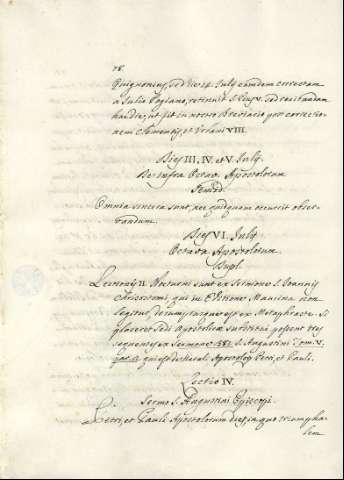 78.
Quignonius, sed die 14 July eamdem correctam
a Julio Pogiano, retinuit S. Pius V. sed recitandam
haud, ut fit in novo Breviario per correctio
nem Clementis, et Urbani VIII.
Dies III, IV. et V. July.
De infra Octav. Apostolorum
Semid.
Omnia sincera sunt, nec quidquam occurrit obser
vandum.
Dies VI. July
Octava Apostolorum
Dupl.
Lectiones II. Nocturni sunt ex Sermone S. Joannis
Chrisostomi, qui in Editione Maurina non
legitur, desumptaque est ex Metaphraste. Si
placeret Sedi Apostolicæ substitui possent tres
sequentes ex Sermone 381. S. Augustini Tom. V.
qui est de Natali Apostolor. Petri, et Pauli.
Lectio IV.
Sermo S. Augustini Episcopi.
Petri, et Pauli Apostolorum dies, in quo triumpha
lem